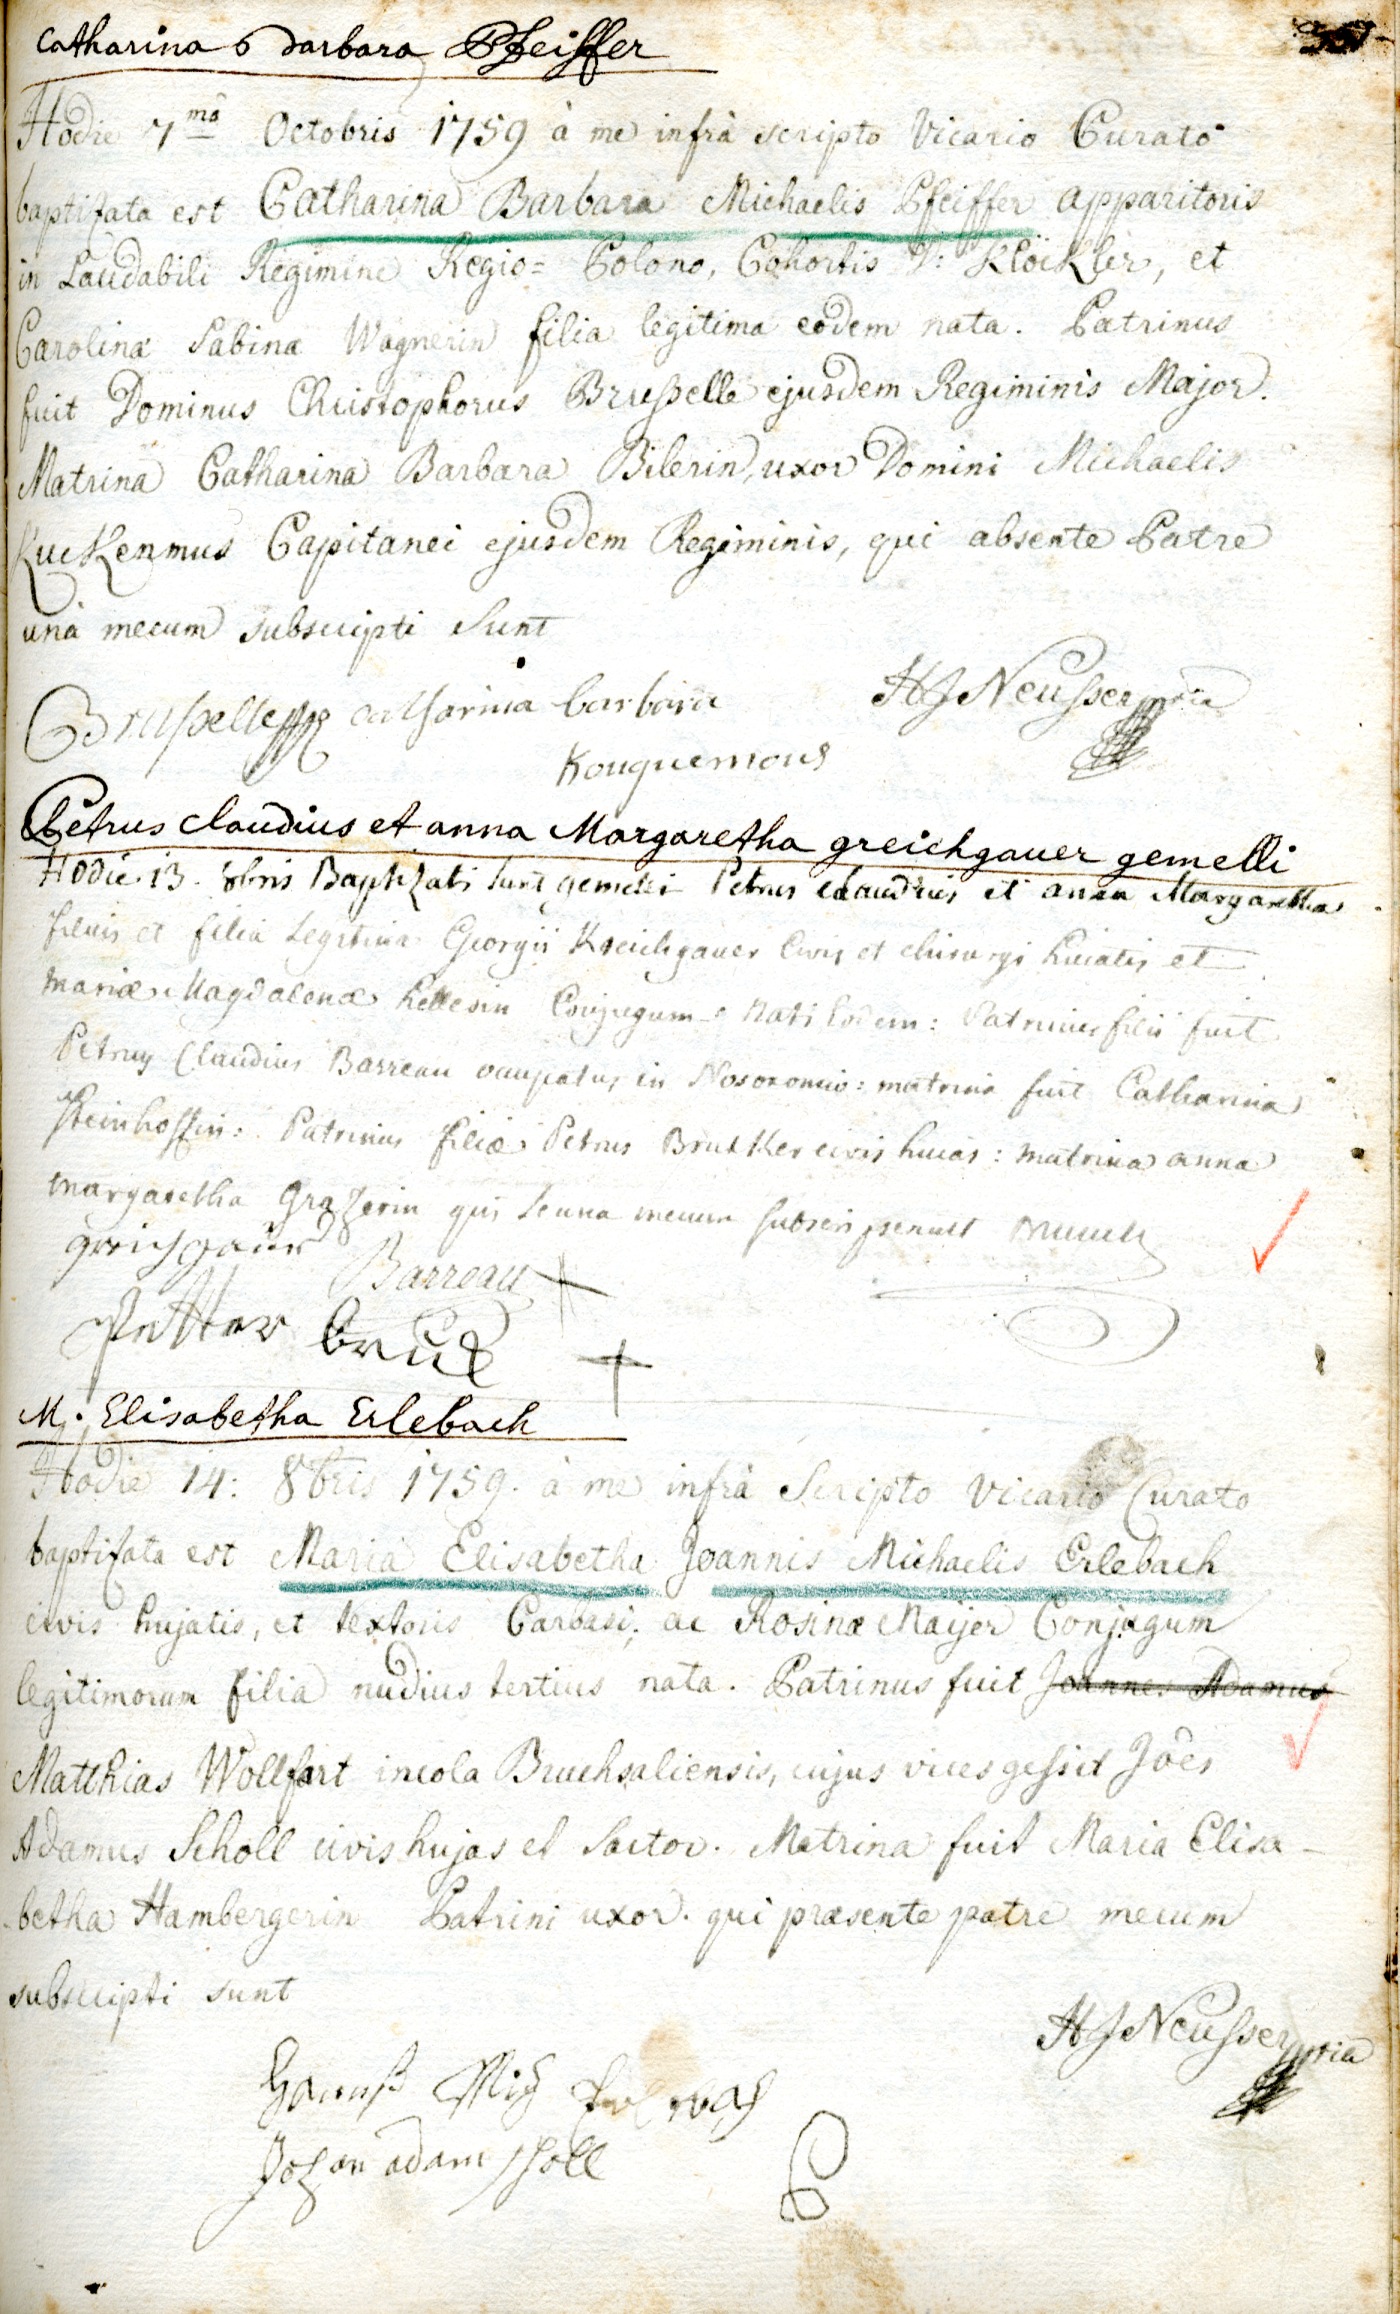 Catharina barbara Pfeiffer
Hodie 7mâ Octobris 1759 à me infrà scripto Vicario Curato
baptizata est Catharina Barbara Michaelis Pfeiffer apparitoris
in Laudabili Regimine Regio= Polono, Cohortis D: Klöckler, et
Carolinæ Sabinæ Wagnerin filia legitima eodem nata. Patrinus
fuit Dominus Christophorus Brusselle ejusdem Regiminis Major.
Matrina Catharina Barbara Bilerin, uxor Domini Michaelis
Kuckenmus Capitanei ejusdem Regiminis, qui absente Patre
unà mecum subscripti sunt
Brusselle catharina barbara HJ Neusser mpria
Kouquemous
Petrus claudius et anna Margaretha greichgauer gemelli
Hodie 13. 8bris Baptizati sunt gemelli Petrus claudius et anna Margaretha
filius et filia legitima Georgii Kreichgauer civis et chirurgi huiatis et
mariæ Magdalenæ Kellesin Conjugum: nati Eodem: Patrinus filii fuit
Petrus Claudius Barreau occupatus in Nosocomio: matrina fuit Catharina
Steinhoffin: Patrinus filiæ Petrus Brukker civis huias: matrina anna
margaretha Grazerin qui se una mecum subscripserunt
greichgauer Barreau +
Petter bruck +
M. Elisabetha Erlebach
Hodie 14: 8bris 1759. à me infrà Scripto Vicario Curato
baptizata est Maria Elisabetha Joannis Michaelis Erlebach
civis hujatis, et textoris Carbasi, ac Rosinæ Maijer Conjugum
legitimorum filia nudius tertius nata. Patrinus fuit Joannes Adamus
Matthias Wollfart incola Bruchsaliensis, cujus vices gessit Jôes
Adamus Scholl civis hujas et Sartor. Matrina fuit Maria Elisa-
betha Hambergerin Patrini uxor. qui præsente patre mecum
subscripti sunt
HJ Neusser mpria
Hannß Mich Erlebach
Johan adam scholl